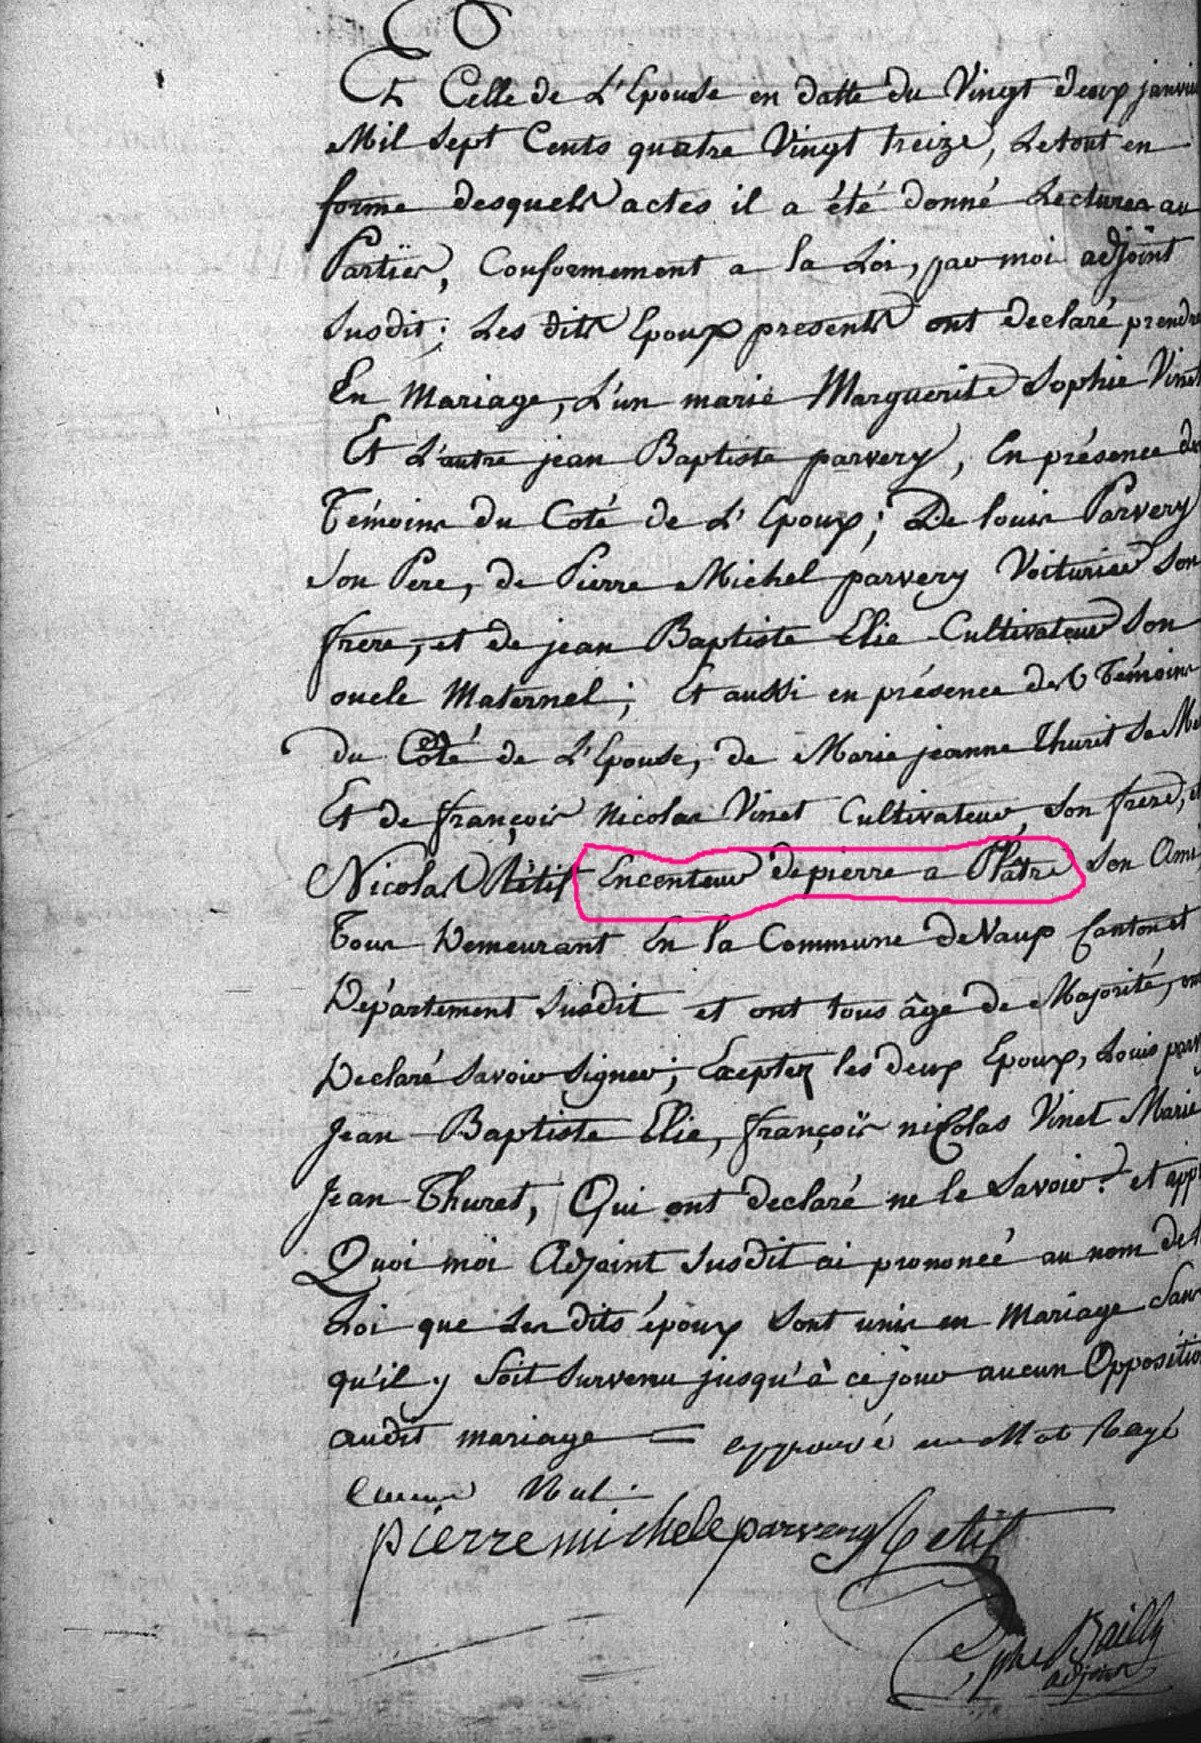 Et Celle de L'Epouse en datte du Vingt deux janvier
Mil Sept Cents quatre Vingt treize, Le tout en
forme desquels actes il a été donné Lectures au
Parties, Conformement a la Loi, par moi adjoint
Susdit; Les dits Epoux presents ont declaré prendre
En Mariage, L'un marie Marguerite Sophie Vinet
Et L'autre jean Baptiste parvery, En présence de
Témoins du Coté de L'Epoux; De louis Parvery
Son Pere, de Pierre Michel parvery Voiturier Son
frere, et de jean Baptiste Elie Cultivateur Son
oncle Maternel; Et aussi en présence des Témoins
du Côté de L'Epouse, de Marie jeanne Thuret Sa Me
Et de françois Nicolas Vinet Cultivateur Son frere, et
Nicolas Rétif Encenteur de pierre a Platre Son Ami
Tous Demeurant En la Commune de Vaux Canton et
Département Susdit et ont tous âge de Majorité, on
Declaré Savoir Signer; Excepter les deux Epoux, Louis parv
Jean Baptiste Elie, françois nicolas Vinet Marie
Jean Thuret, Qui ont declaré ne le Savoir. et app
Quoi moi Adjoint Susdit ai prononcé au nom de la
Loi que Les dits époux Sont unis en Mariage Sans
qu'il y Soit Survenu jusqu'à ce jour aucun Oppositio
audit mariage = approuvé un Mot Rayé
comme Nul.
pierre michele parvery Retif
Bailly
adjoint